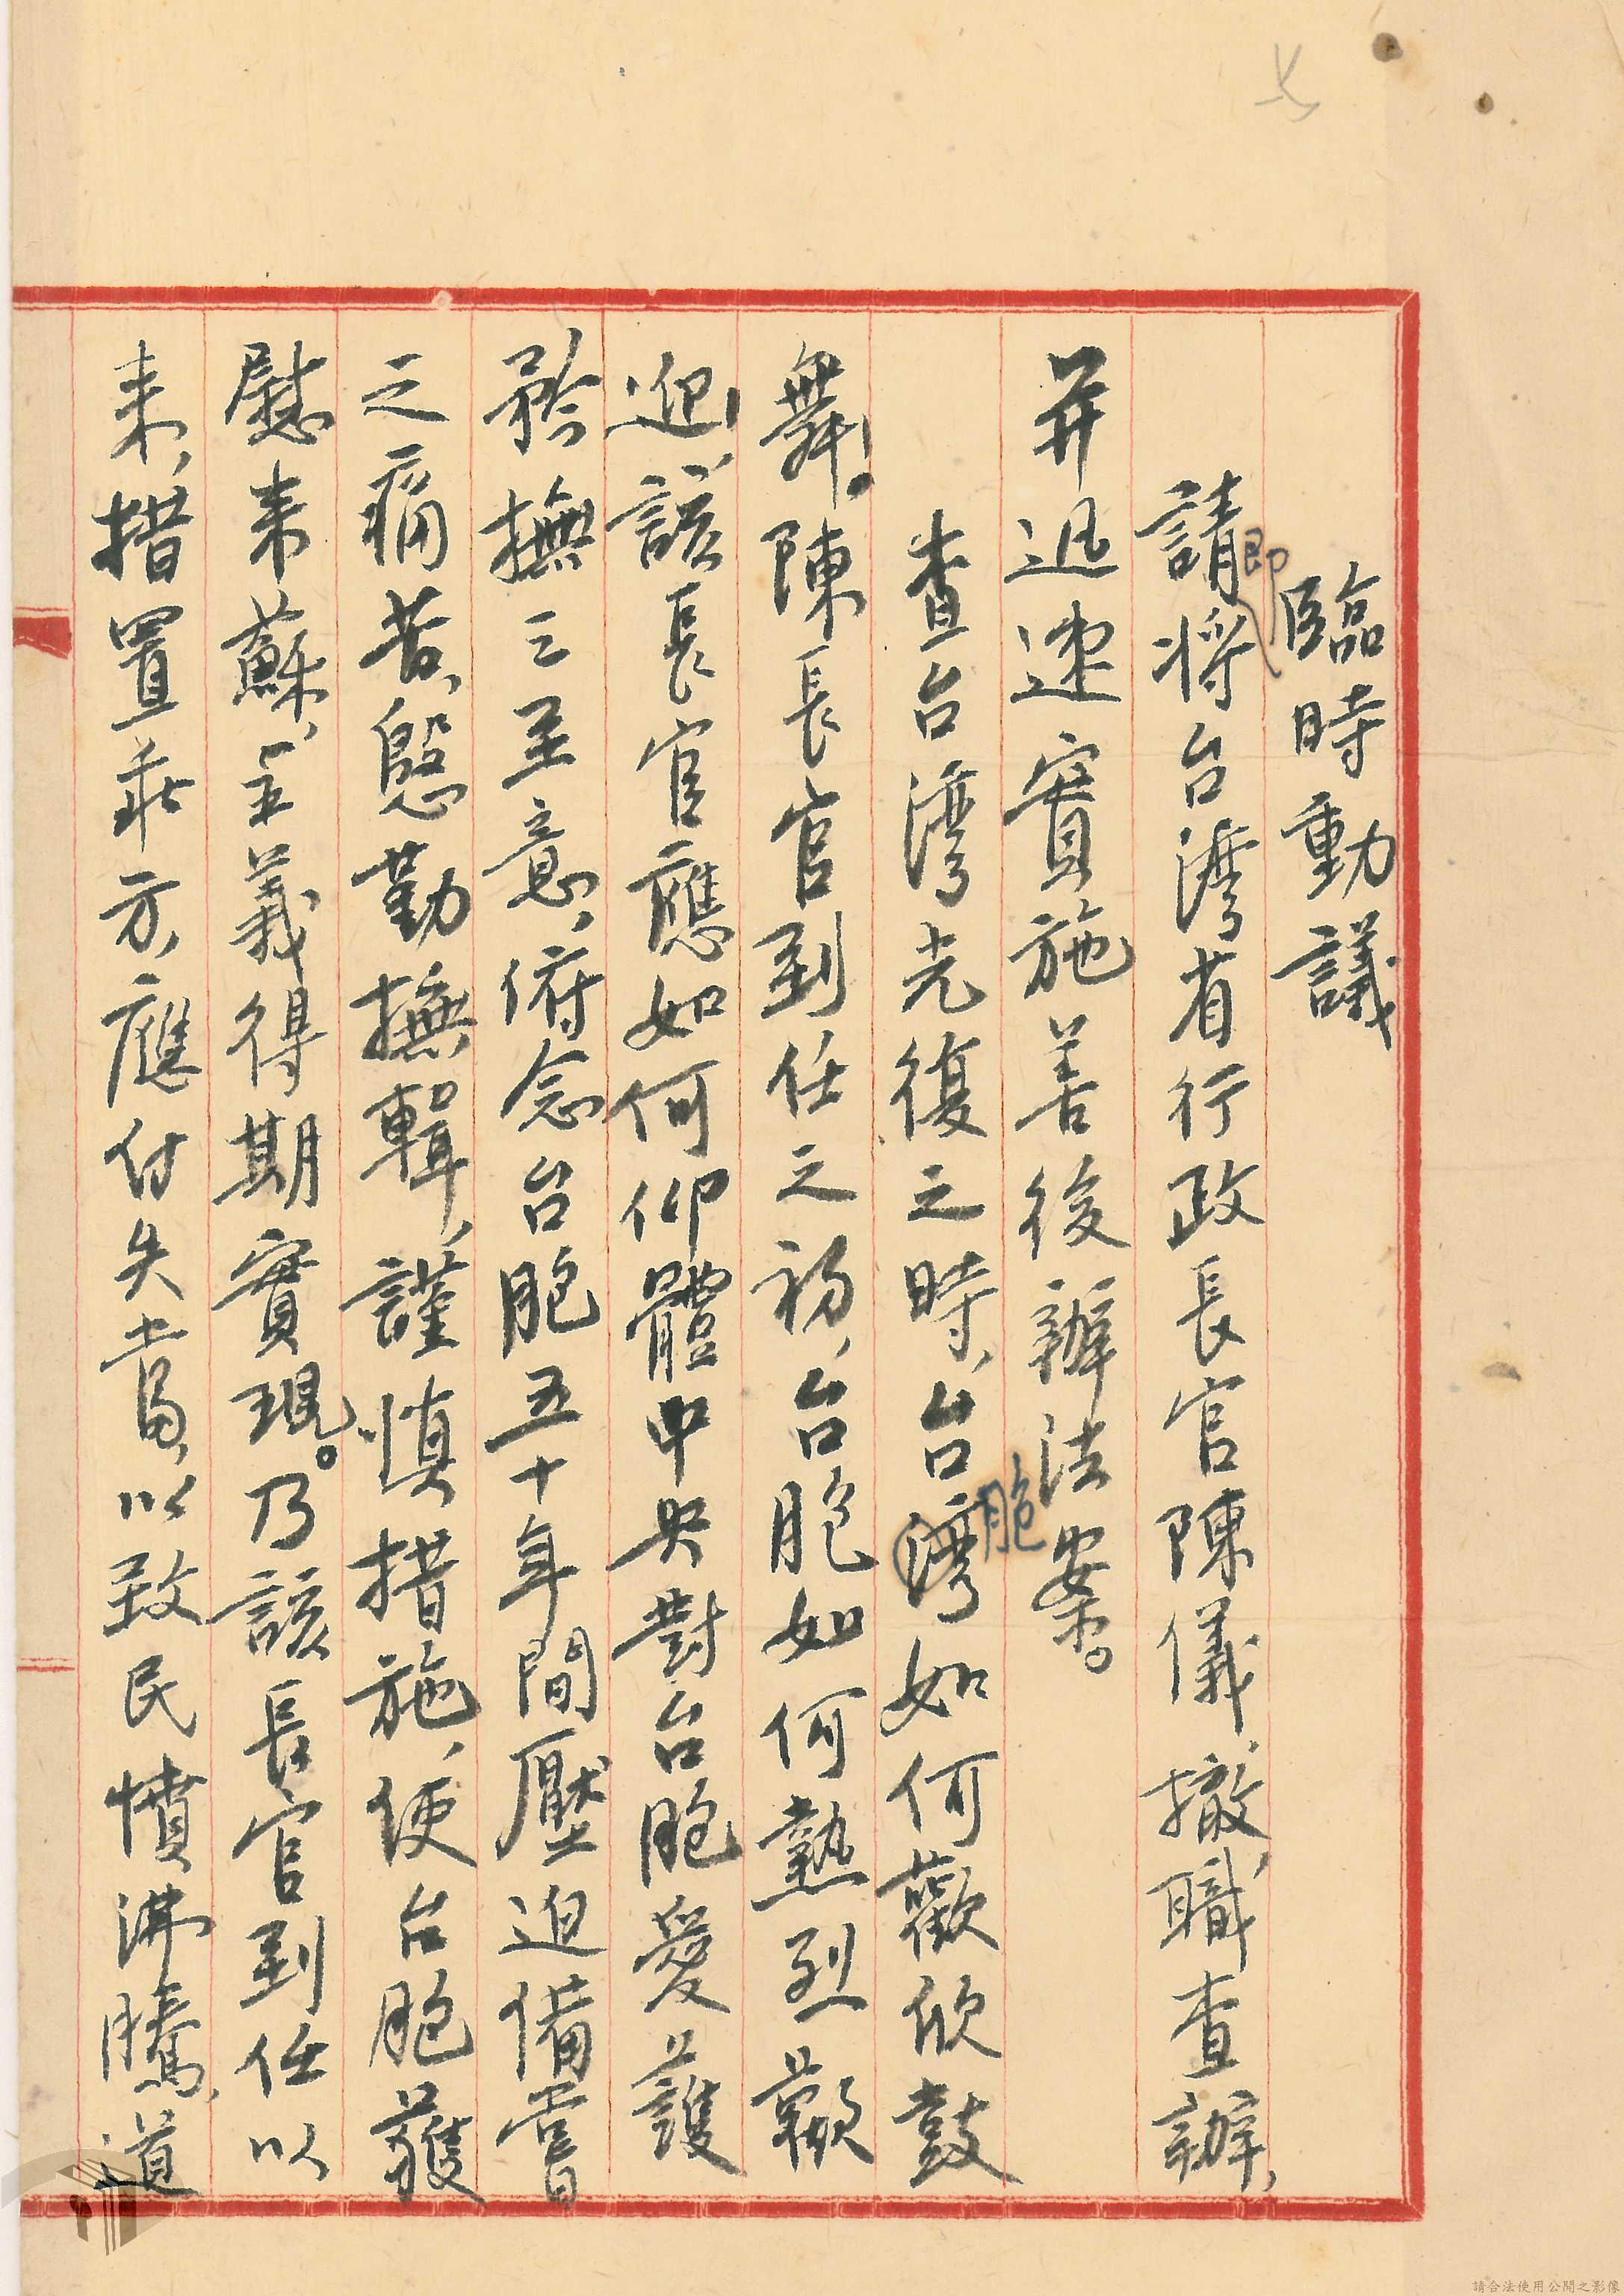 七
臨時動議
請即將台灣省行政長官陳儀、撤職查辦、
并迅速實施善後辦法案。
查台灣光復之時、台灣胞如何歡欣鼓
舞。陳長官到任之初、台胞如何熱烈歡
迎、該長官應如何仰體中央對台胞愛護
矜撫之至意、俯念台胞五十年間壓迫備嘗
之痛苦、慇勤撫輯、謹慎措施、使台胞獲
慰来蘇、主義得期實現。乃該長官到任以
来、措置乖方、應付失當、以致民憤沸騰、道
請合法使用公開之影像